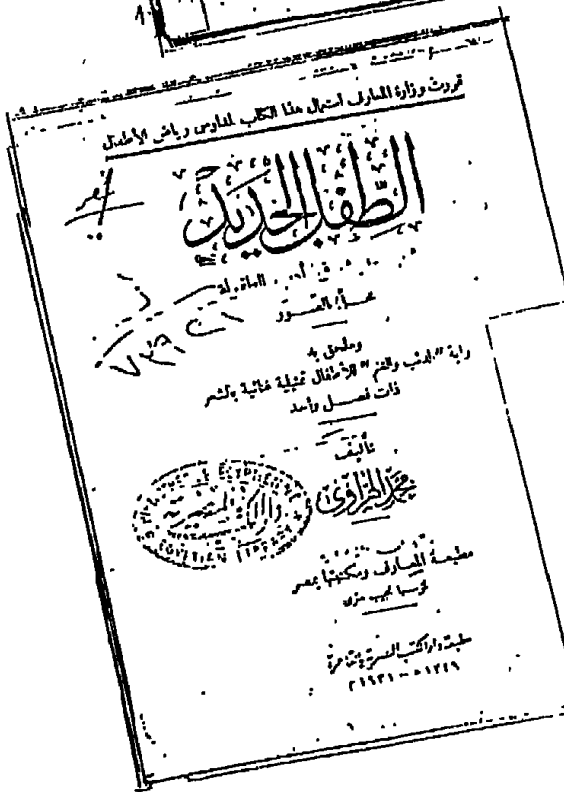 قررت وزارة المعارف استعمال هذا الكتاب لمدارس رياض الأطفال
الطفل الجديد
محلّى بالصور
وملحق به
رواية "الذئب والغنم" للأطفال تمثيلية غنائية بالشعر
ذات فصل واحد
تأليف
محمد الهراوي
دار الكتب المصرية
مطبعة المعارف ومكتبتها بمصر
لمؤسسها نجيب متري
مطبعة دار الكتب المصرية بالقاهرة
١٣٤٩ ه - ١٩٣١ م